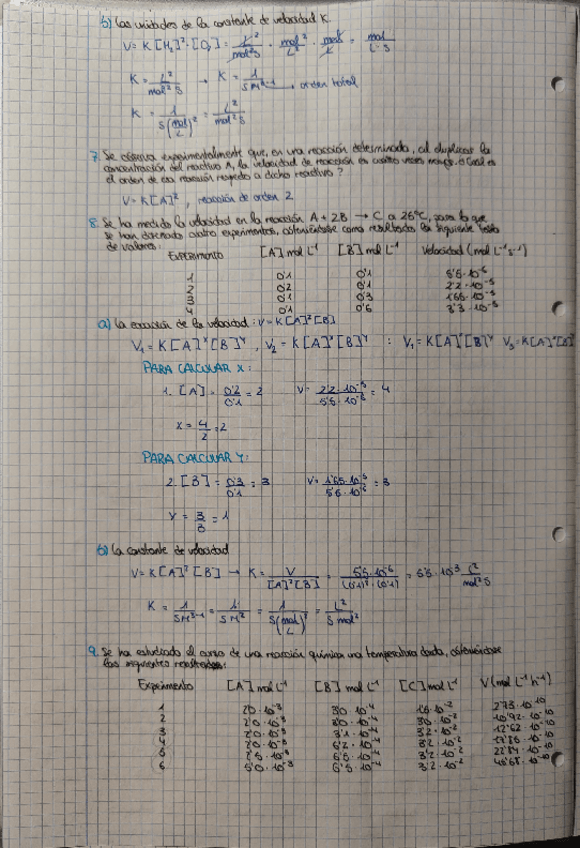 b) Las unidades de la constante de velocidad K.
V = K [H₂]² · [O₂] = L²/mol² s · mol²/L² · mol/L = mol/L · s
K = L²/mol² s → K = 1/s M³⁻¹ → orden total
K = 1/s(mol/L)² = L²/mol² s
7. Se observa experimentalmente que, en una reacción determinada, al duplicar la
concentración del reactivo A, la velocidad de reacción es cuatro veces mayor. ¿Cuál es
el orden de esa reacción respecto a dicho reactivo?
V = K [A]², reacción de orden 2
8. Se ha medido la velocidad en la reacción A + 2B → C a 25°C, para lo que
se han diseñado cuatro experimentos, obteniéndose como resultados la siguiente tabla
de valores:
EXPERIMENTO [A] mol L⁻¹ [B] mol L⁻¹ Velocidad (mol L⁻¹ s⁻¹)
1 0'1 0'1 5'5 · 10⁻⁶
2 0'2 0'1 2'2 · 10⁻⁵
3 0'1 0'3 1'65 · 10⁻⁵
4 0'1 0'6 3'3 · 10⁻⁵
a) La ecuación de la velocidad: V = K [A]² [B]
V₁ = K [A]ˣ [B]ʸ , V₂ = K [A]ˣ [B]ʸ : V₁ = K [A]ˣ [B]ʸ V₃ = K [A]ˣ [B]ʸ
PARA CALCULAR X:
1. [A] = 0'2/0'1 = 2 V = 2'2 · 10⁻⁵/5'5 · 10⁻⁶ = 4
x = 4/2 = 2
PARA CALCULAR Y:
2. [B] = 0'3/0'1 = 3 V = 1'65 · 10⁻⁵/5'5 · 10⁻⁶ = 3
y = 3/3 = 1
b) La constante de velocidad
V = K [A]² [B] → K = V/[A]² [B] = 5'5 · 10⁻⁶/(0'1)² · (0'1) = 5'5 · 10⁻³ L²/mol² s
K = 1/s M³⁻¹ = 1/s M² = 1/s(mol/L)² = L²/s mol²
9. Se ha estudiado el curso de una reacción química una temperatura dada, obteniéndose
los siguientes resultados:
Experimento [A] mol L⁻¹ [B] mol L⁻¹ [C] mol L⁻¹ V (mol L⁻¹ h⁻¹)
1 2'0 · 10⁻³ 3'0 · 10⁻⁴ 1'6 · 10⁻² 2'73 · 10⁻¹⁰
2 2'0 · 10⁻³ 3'0 · 10⁻⁴ 3'0 · 10⁻² 10'92 · 10⁻¹⁰
3 2'0 · 10⁻³ 3'1 · 10⁻⁴ 3'2 · 10⁻² 12'62 · 10⁻¹⁰
4 2'0 · 10⁻³ 6'2 · 10⁻⁴ 3'2 · 10⁻² 10⁻¹⁰
5 2'5 · 10⁻³ 6'5 · 10⁻⁴ 3'2 · 10⁻² 10⁻¹⁰
6 5'0 · 10⁻³ 6'5 · 10⁻⁴ 3'2 · 10⁻² 45'68 · 10⁻¹⁰